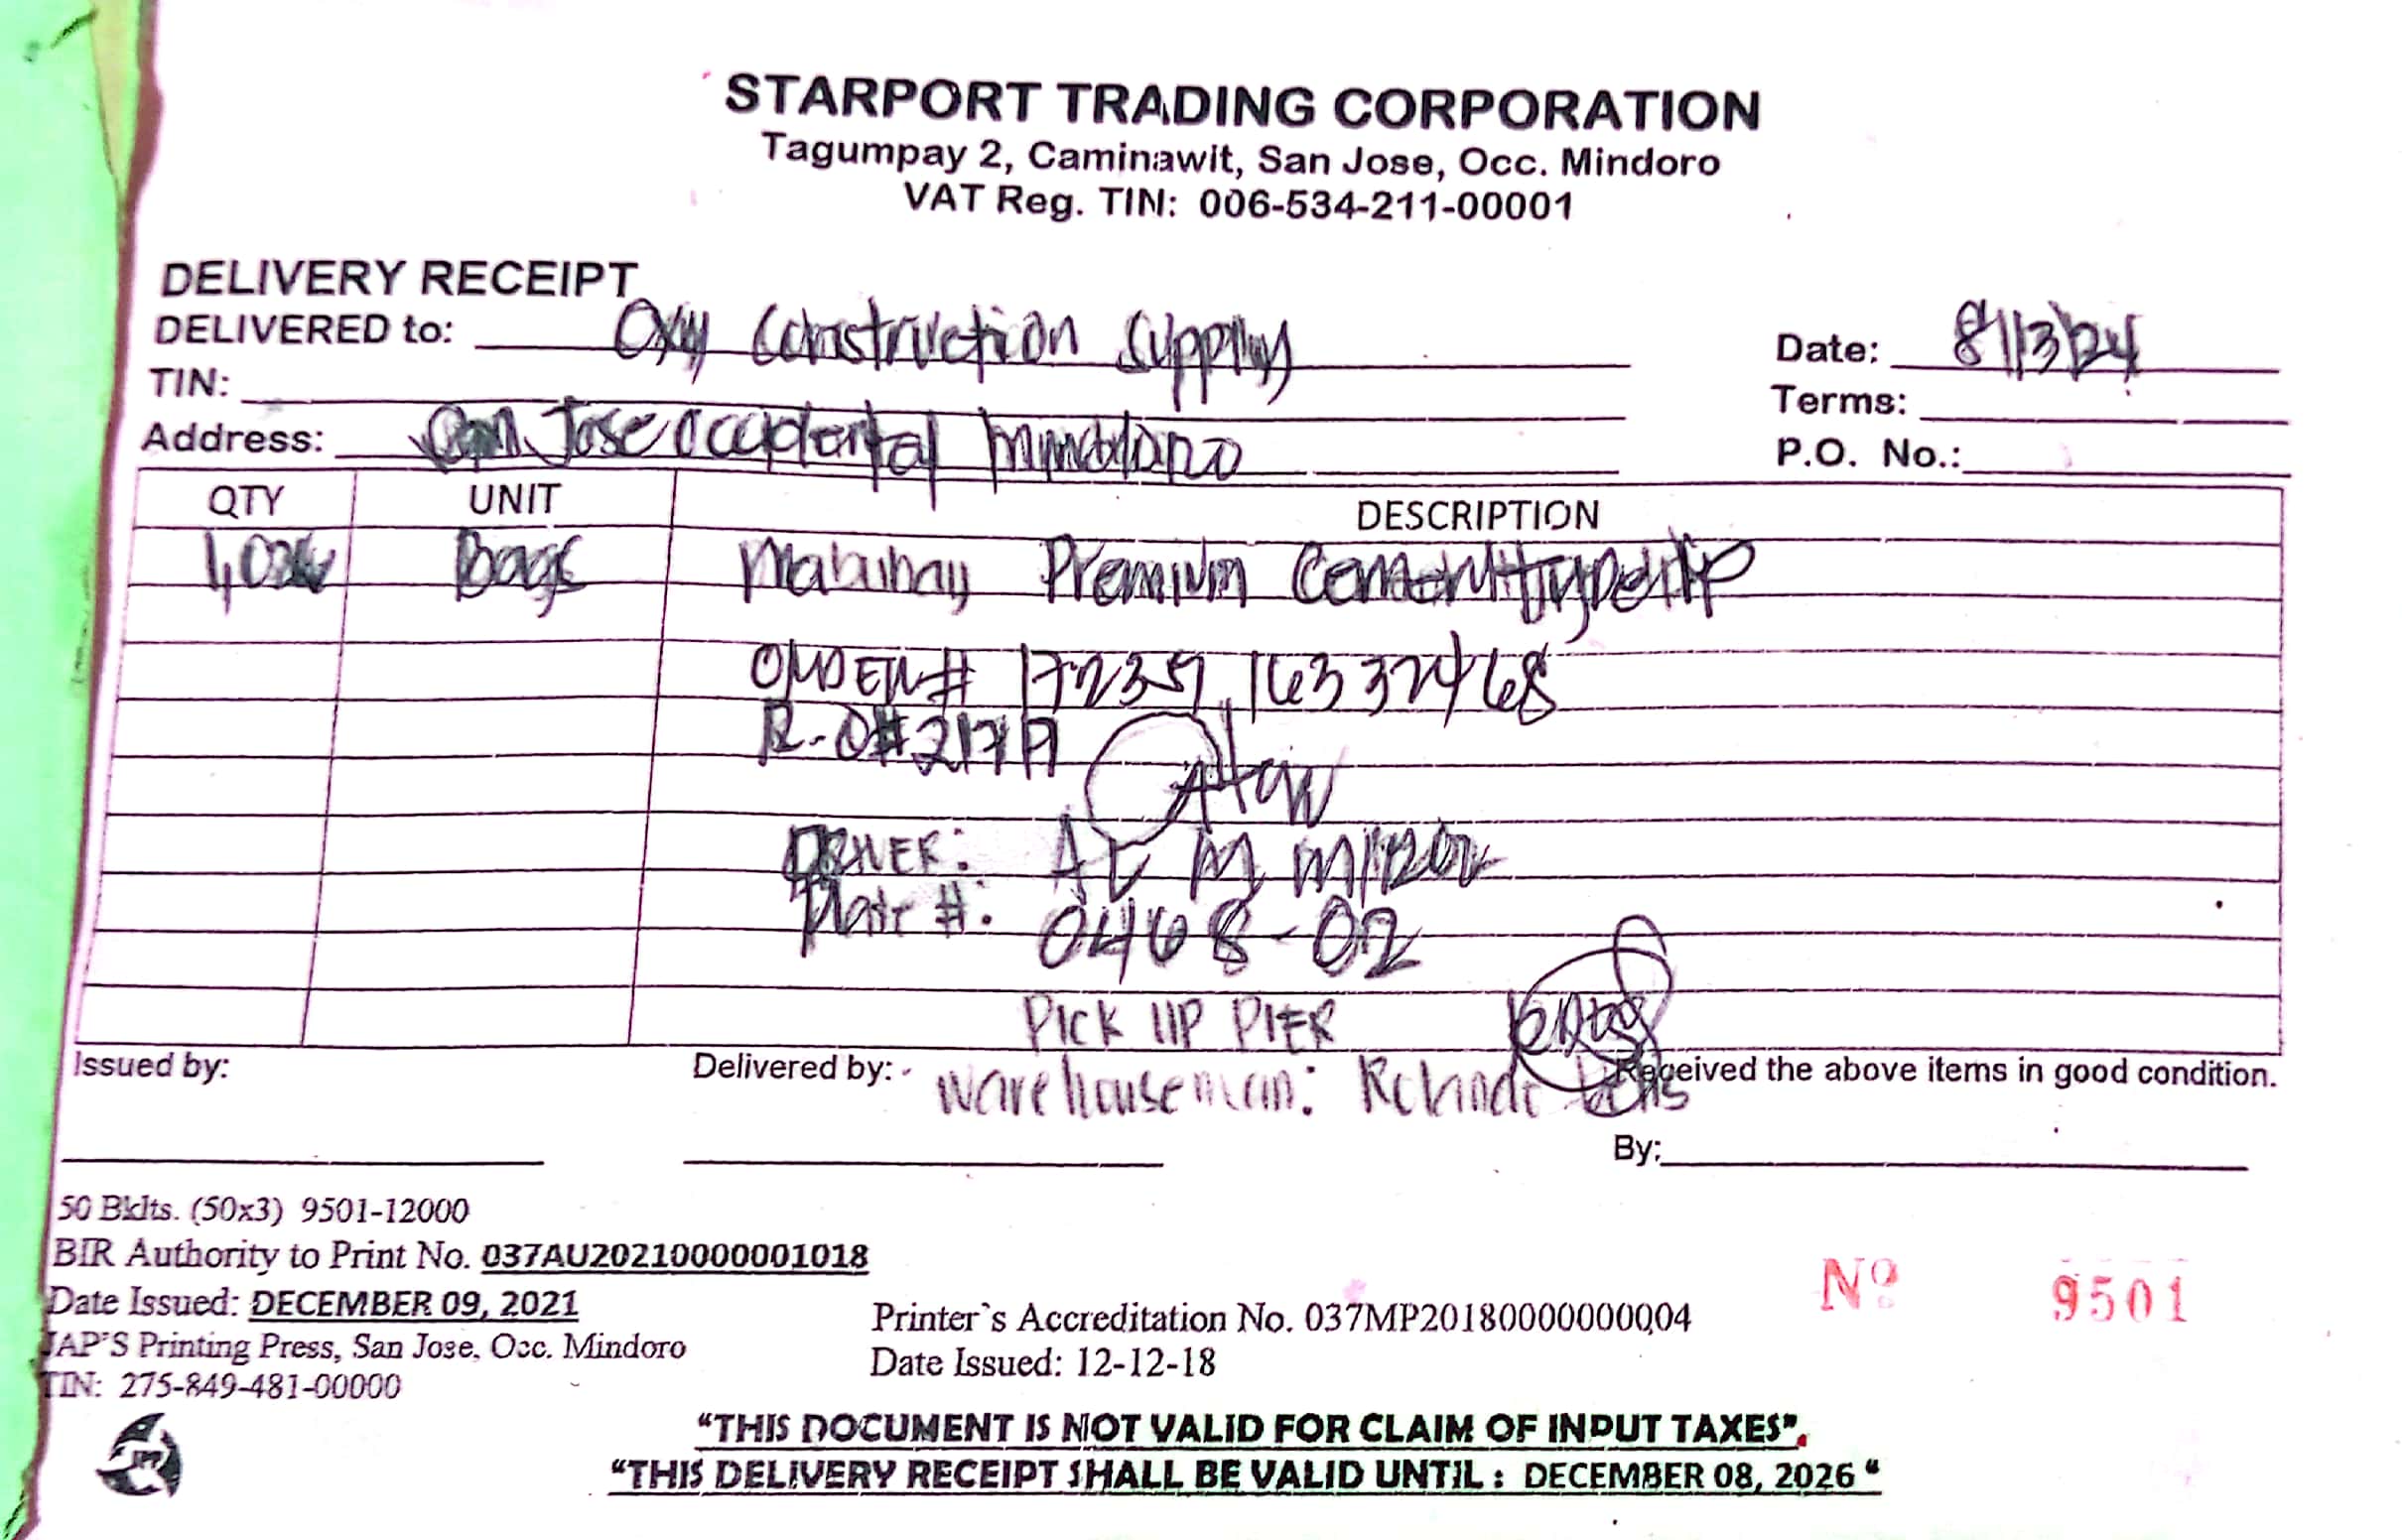 STARPORT TRADING CORPORATION
Tagumpay 2, Caminawit, San Jose, Occ. Mindoro
VAT Reg. TIN: 006-534-211-00001
DELIVERY RECEIPT
DELIVERED to: Oxy Construction Supply
Date: 8/13/24
TIN:
Terms:
Address: San Jose Occidental Mindoro
P.O. No.:
QTY UNIT DESCRIPTION
Bags Mabuhay Premium Cement type 1P
17239 16332468
R.O#
DRIVER: AL M
Plate #: 0468-02
PICK UP PIER
Issued by:
Delivered by:
Received the above items in good condition.
Warehouseman:
By:
50 Bklts. (50x3) 9501-12000
BIR Authority to Print No. 037AU20210000001018
Date Issued: DECEMBER 09, 2021
JAP'S Printing Press, San Jose, Occ. Mindoro
TIN: 275-849-481-00000
Printer`s Accreditation No. 037MP20180000000004
Date Issued: 12-12-18
Nº 9501
“THIS DOCUMENT IS NOT VALID FOR CLAIM OF INPUT TAXES”.
“THIS DELIVERY RECEIPT SHALL BE VALID UNTIL : DECEMBER 08, 2026 “